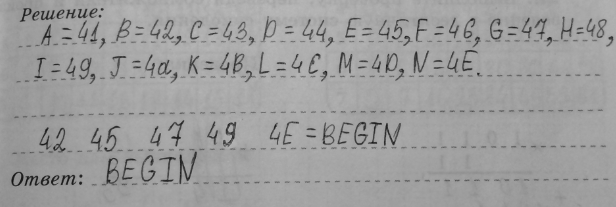 Решение:
A=41, B=42, C=43, D=44, E=45, F=46, G=47, H=48,
I=49, J=4a, K=4B, L=4C, M=4D, N=4E.
42 45 47 49 4E = BEGIN
Ответ: BEGIN